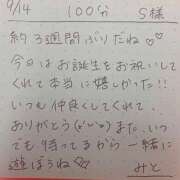 9/14 100分 S様
約3週間ぶりだね♡♡
今日はお誕生をお祝いして
くれて本当に嬉しかった!!
いつも仲良くしてくれて
ありがとう(∨'ω'∨)また、いつ
でも待ってるから一緒に
遊ぼうね♡ みと